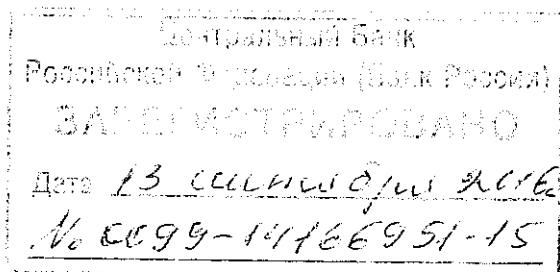 Центральный Банк
Российской Федерации (Банк России)
ЗАРЕГИСТРИРОВАНО
Дата 13 сентября 2016
№ 0099-14166951-15